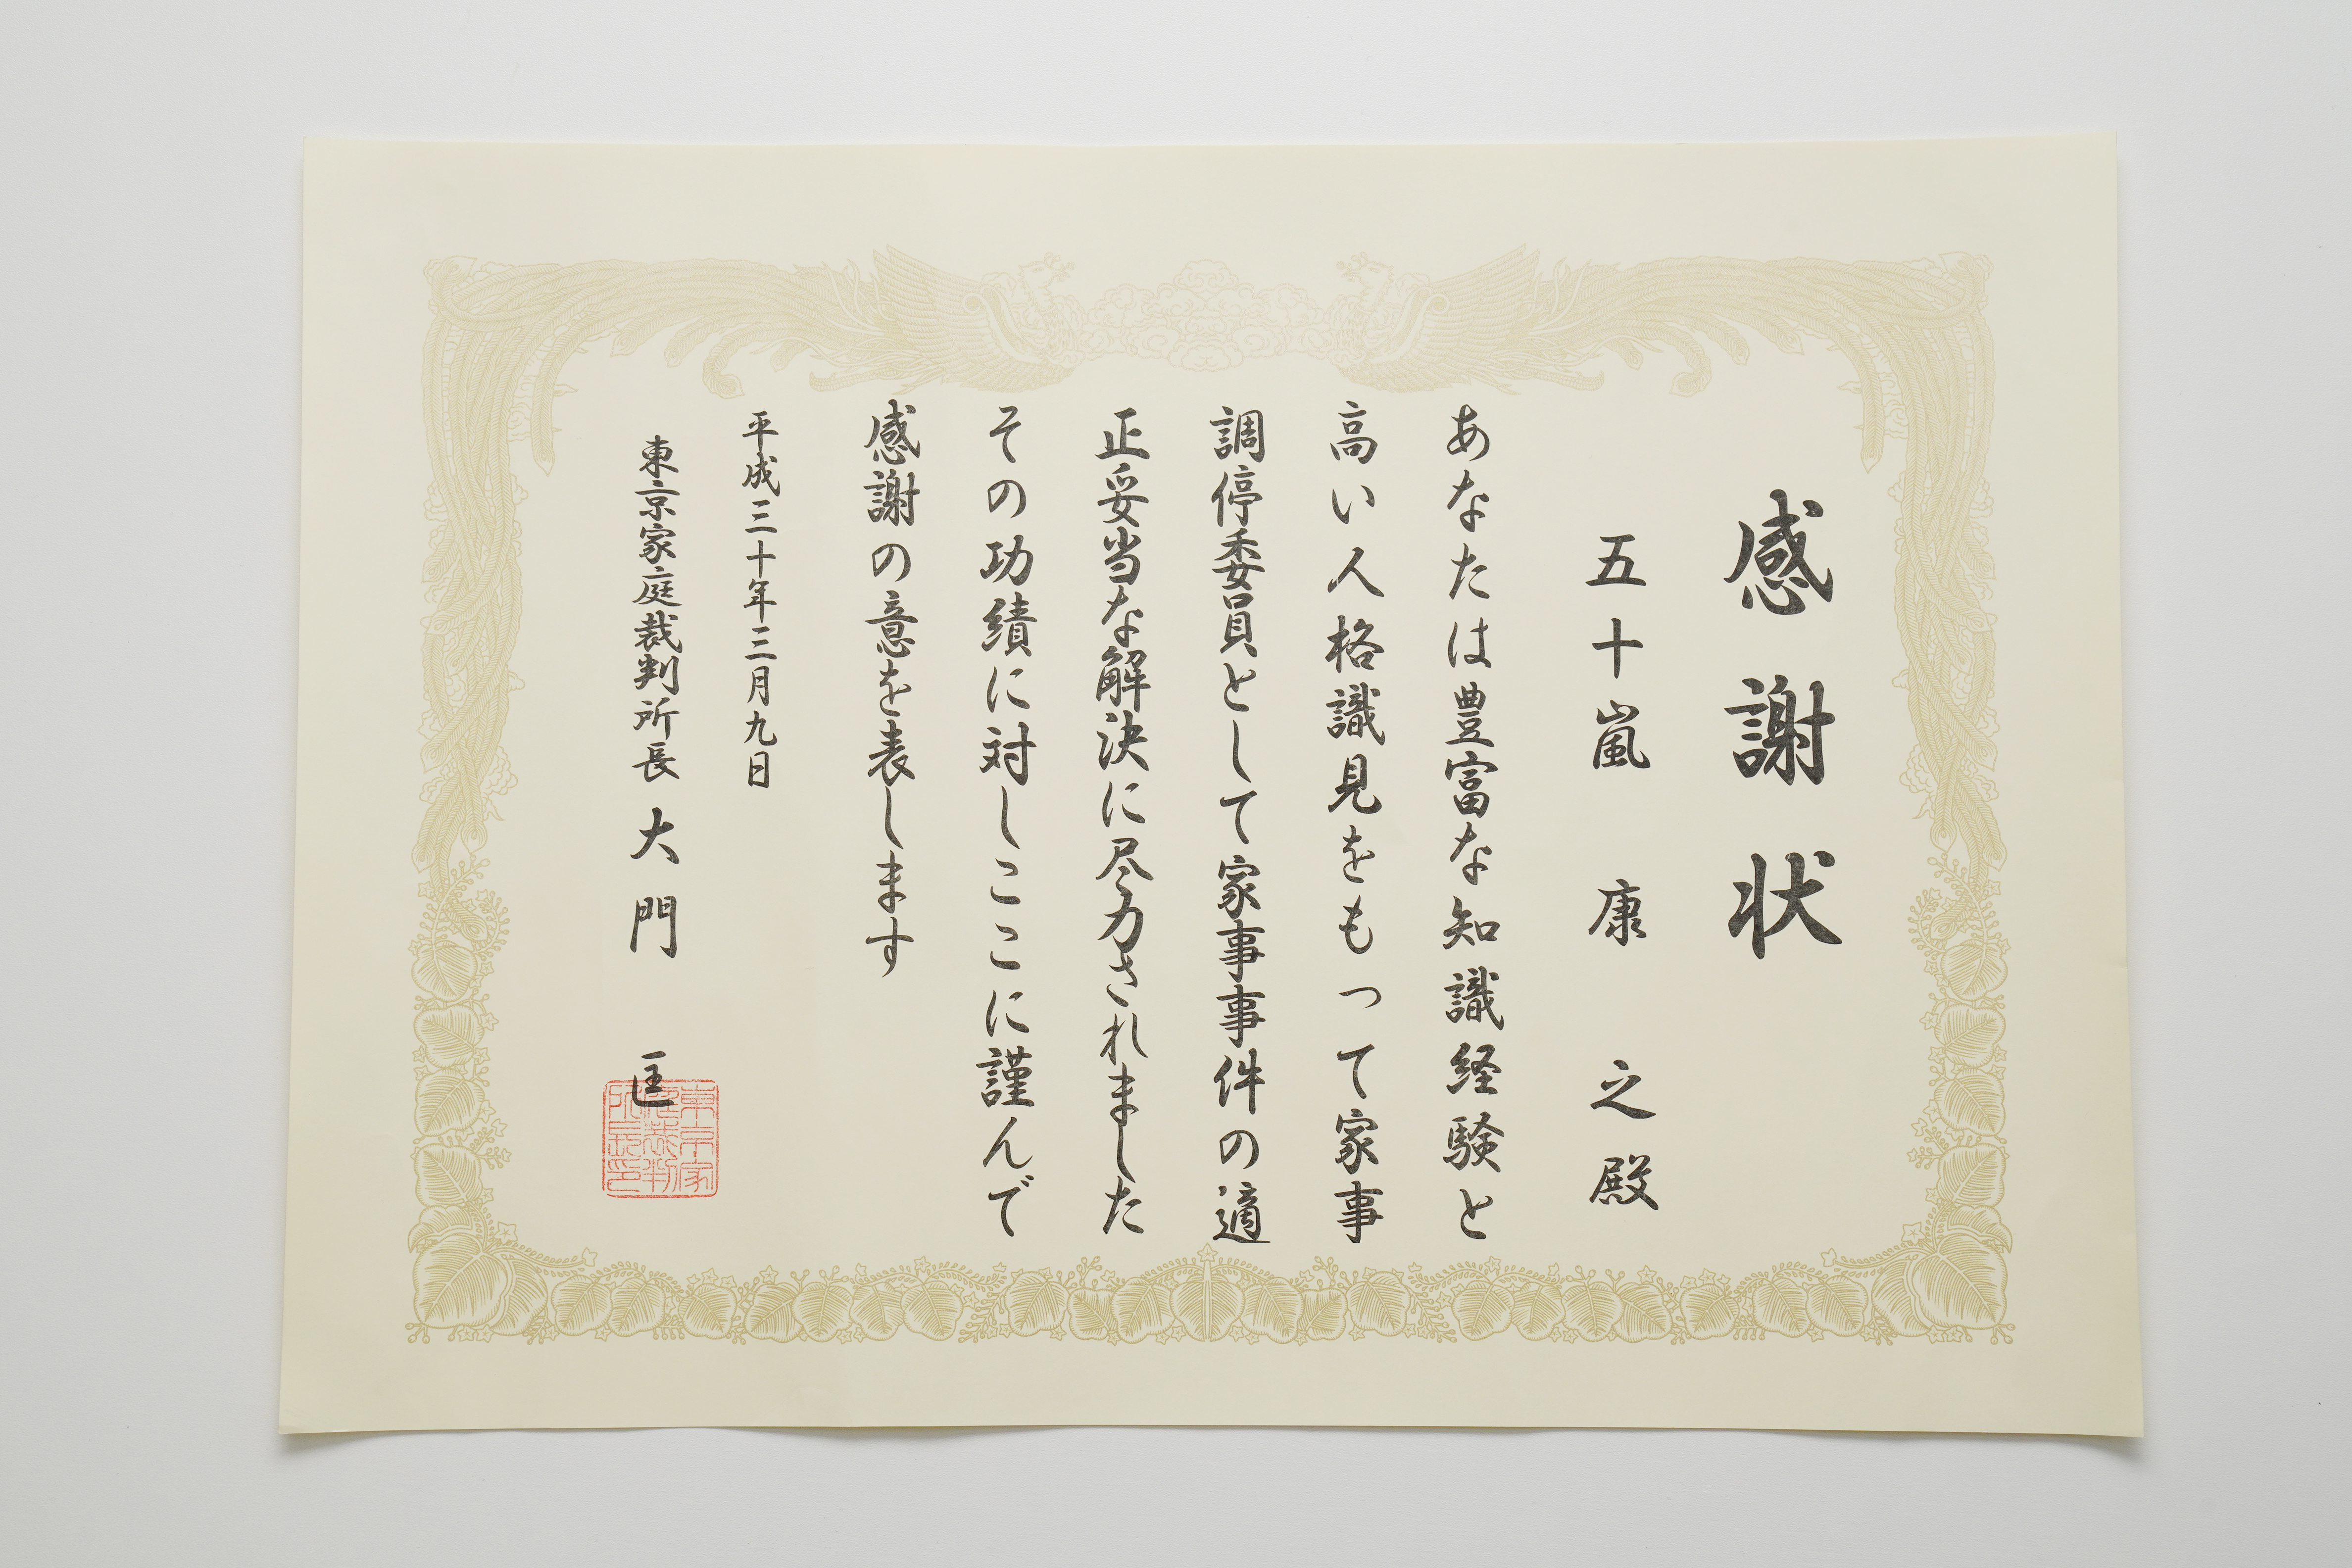 感謝状
五十嵐 康之殿
あなたは豊富な知識経験と
高い人格識見をもって家事
調停委員として家事事件の適
正妥当な解決に尽力されました
その功績に対しここに謹んで
感謝の意を表します
平成三十年三月九日
東京家庭裁判所長 大門 匡
東京家
庭裁判
所長印